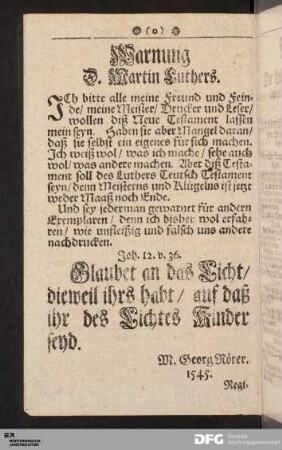 (o)
Warnung
D. Martin Luthers.
ICh bitte alle meine Freund und Fein-
de/ meine Meister/ Drucker und Leser/
wollen diß Neue Testament lassen
mein seyn. Haben sie aber Mangel daran/
daß sie selbst ein eigenes für sich machen.
Ich weiß wol/ was ich mache/ sehe auch
wol/ was andere machen. Aber diß Testa-
ment soll des Luthers Teutsch Testament
seyn/ denn Meisterns und Klügelns ist jetzt
weder Maaß noch Ende.
Und sey jederman gewarnet für andern
Exemplaren/ denn ich bisher wol erfah-
ren/ wie unfleißig und falsch uns andere
nachdrucken.
Joh. 12. v. 36.
Glaubet an das Licht/
dieweil ihrs habt/ auf daß
ihr des Lichtes Kinder
seyd.
M. Georg Rörer.
1545.
Regi-
DFG Deutsche
Forschungsgemeinschaft